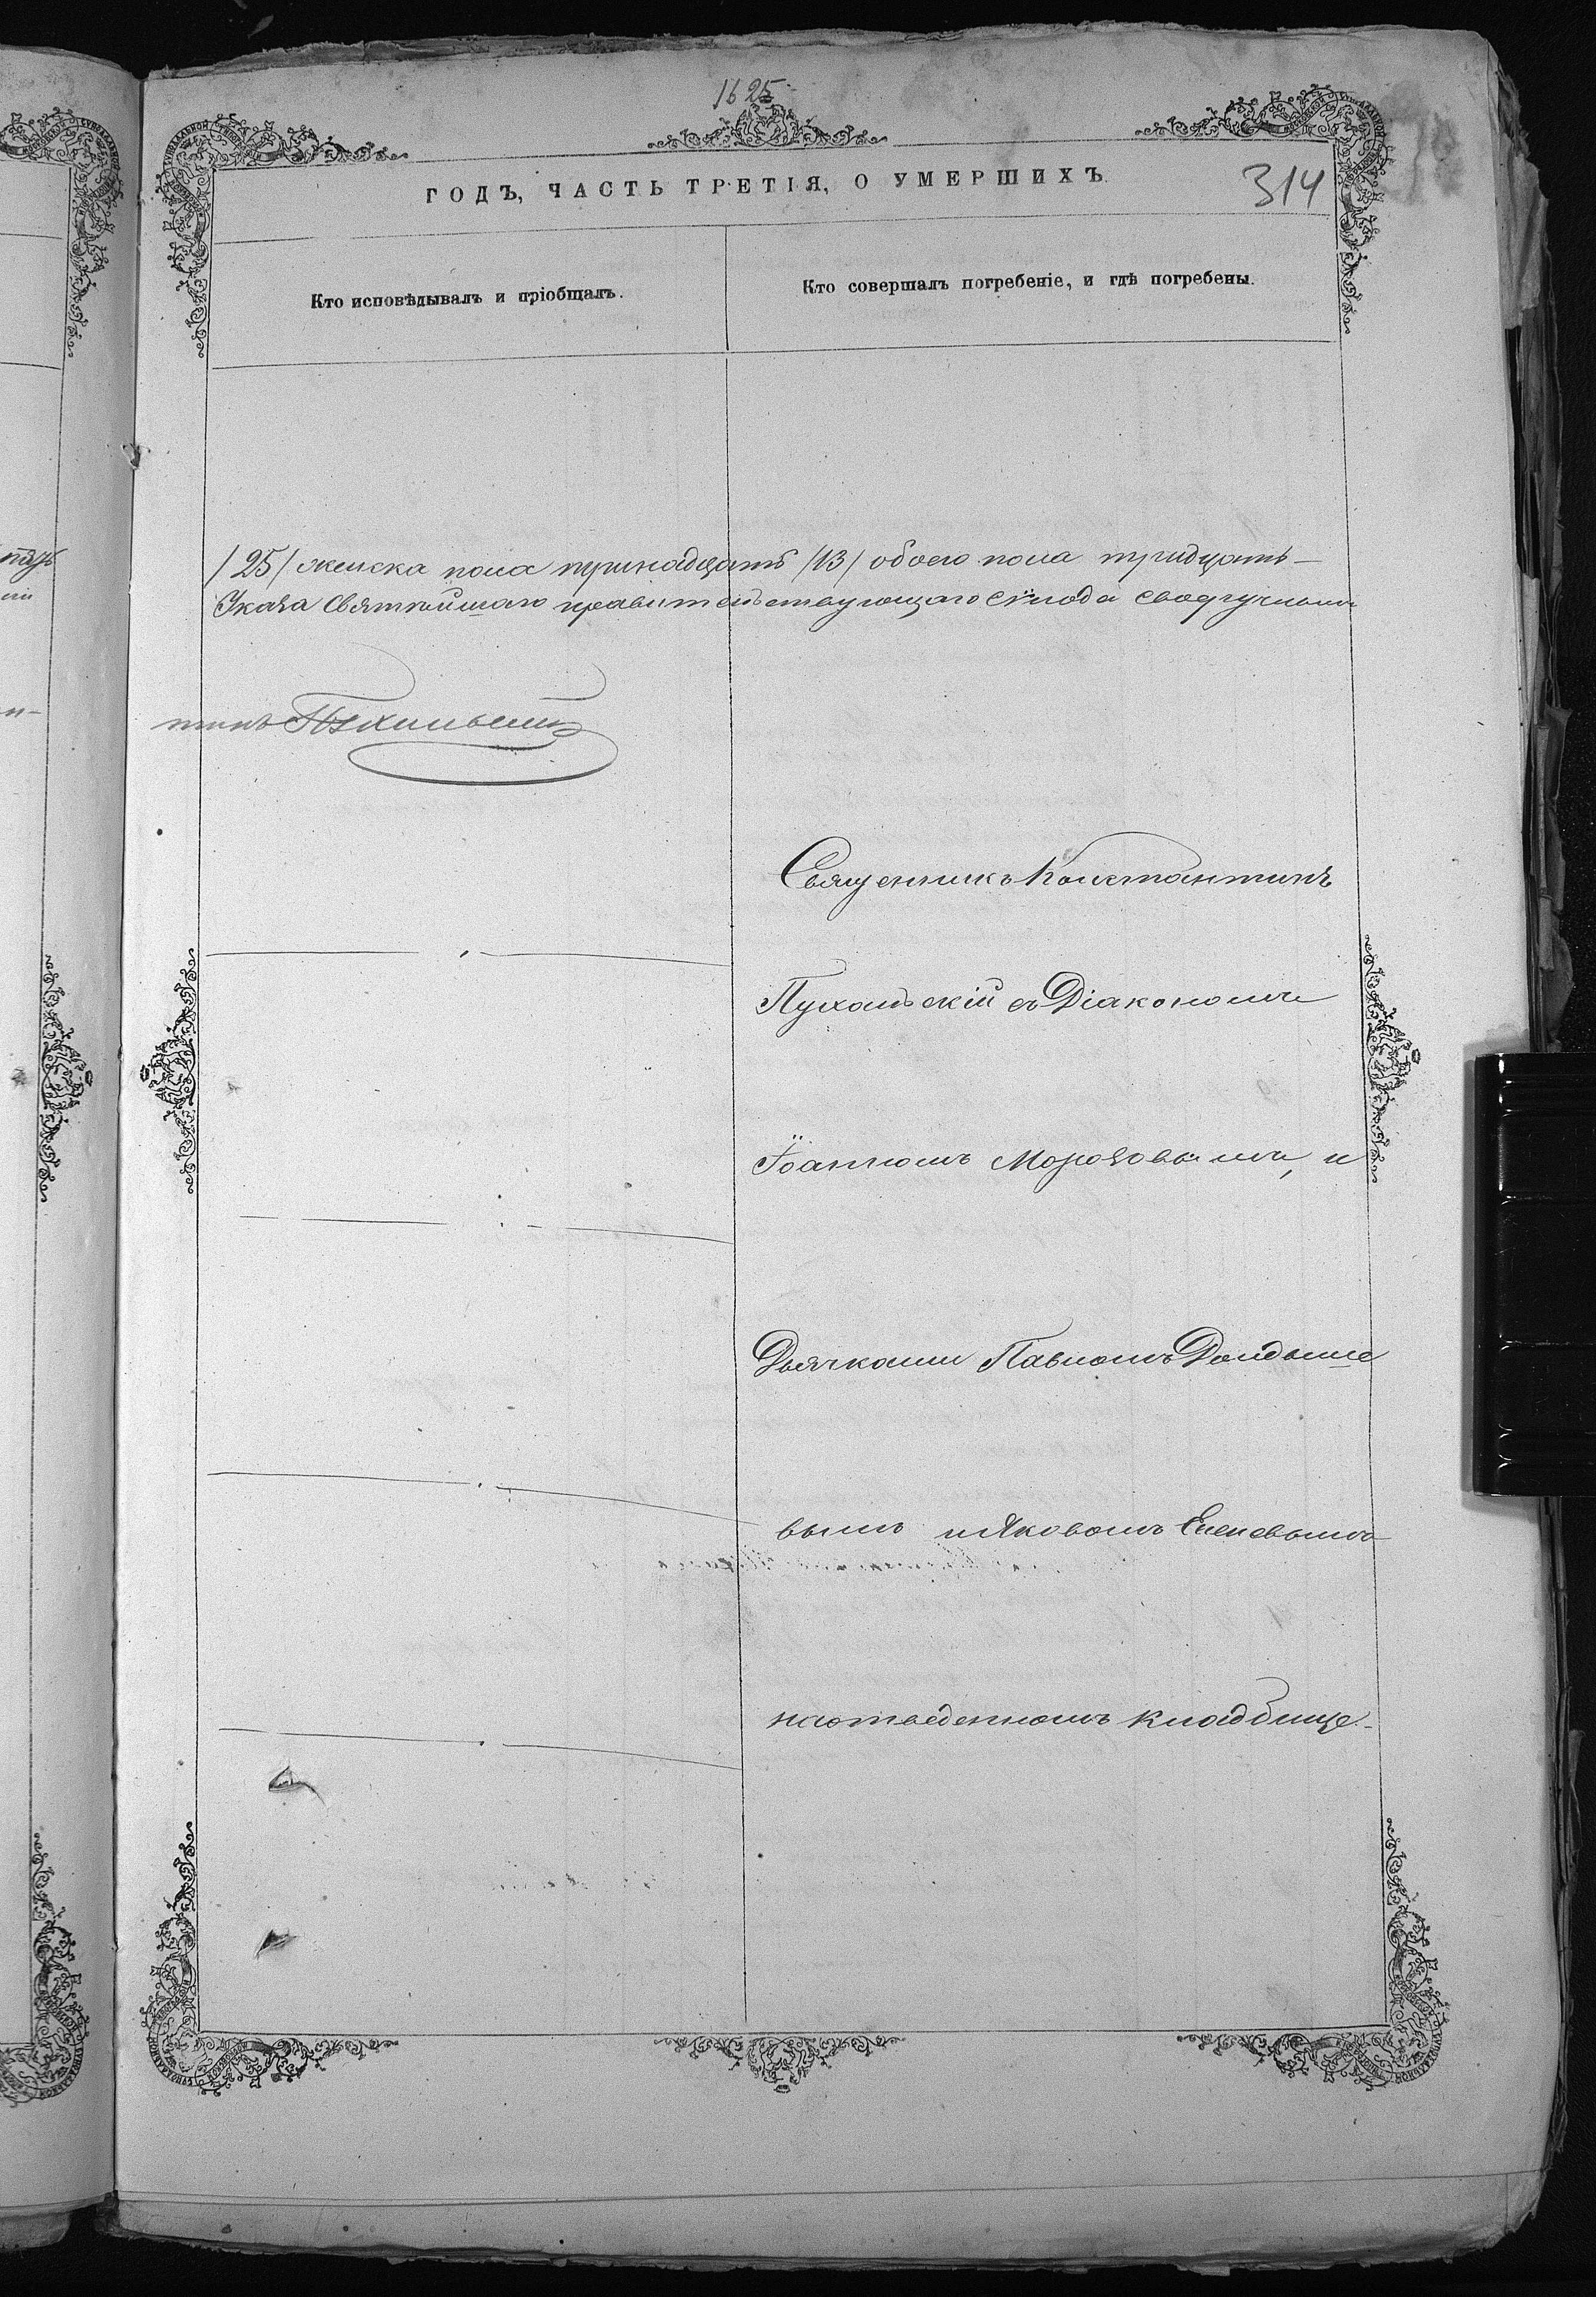 1625
314
ГОДЪ, ЧАСТЬ ТРЕТІЯ, О УМЕРШИХЪ.
Кто исповѣдывалъ и пріобщалъ.
Кто совершалъ погребеніе, и гдѣ погребены.
/25/ женска пола тринадцать /13/ обоего пола тридцать—
Указа Святѣйшаго правительствующаго Сѵнода
тинъ
Священникъ Константинъ
Пухальскій съ Діакономъ
Іоанномъ Морозовымъ, и
Дьячками Павломъ
вымъ и Яковомъ
на отведенномъ кладбище.